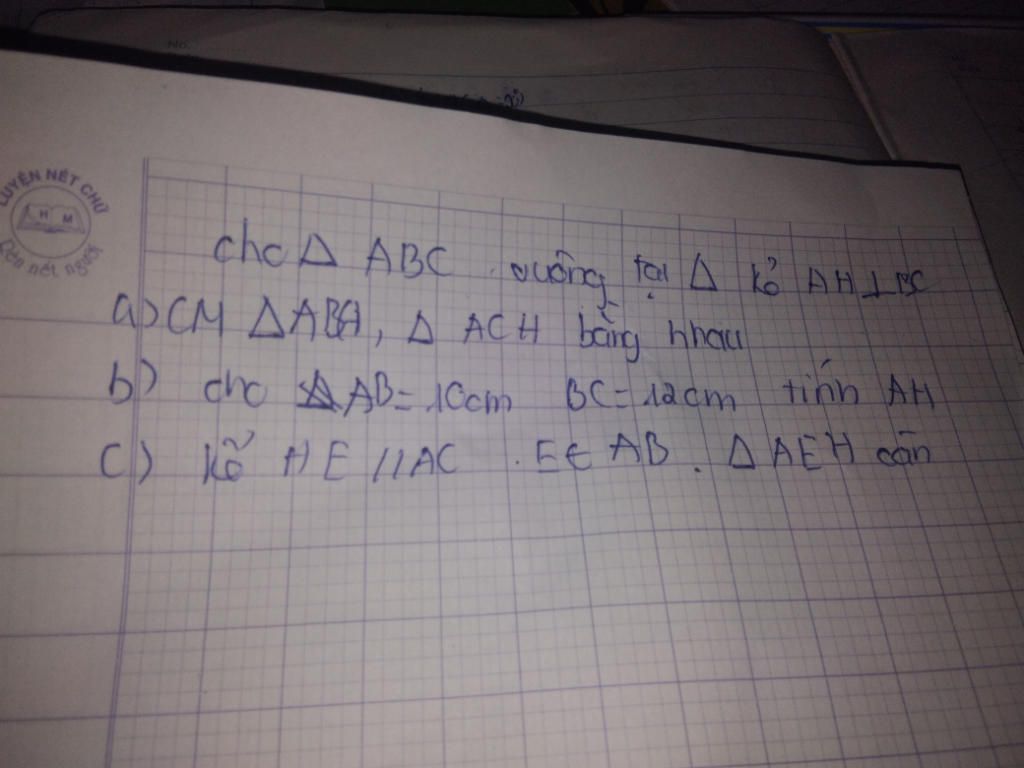 No.
LUYỆN NÉT CHỮ
H M
Rèn nết người
cho Δ ABC vuông tại Δ kẻ AH⊥BC
a) CM ΔABH, Δ ACH bằng nhau
b) cho ΔAB=10cm BC=12cm tính AH
c) kẻ HE//AC. E∈ AB. Δ AEH cân